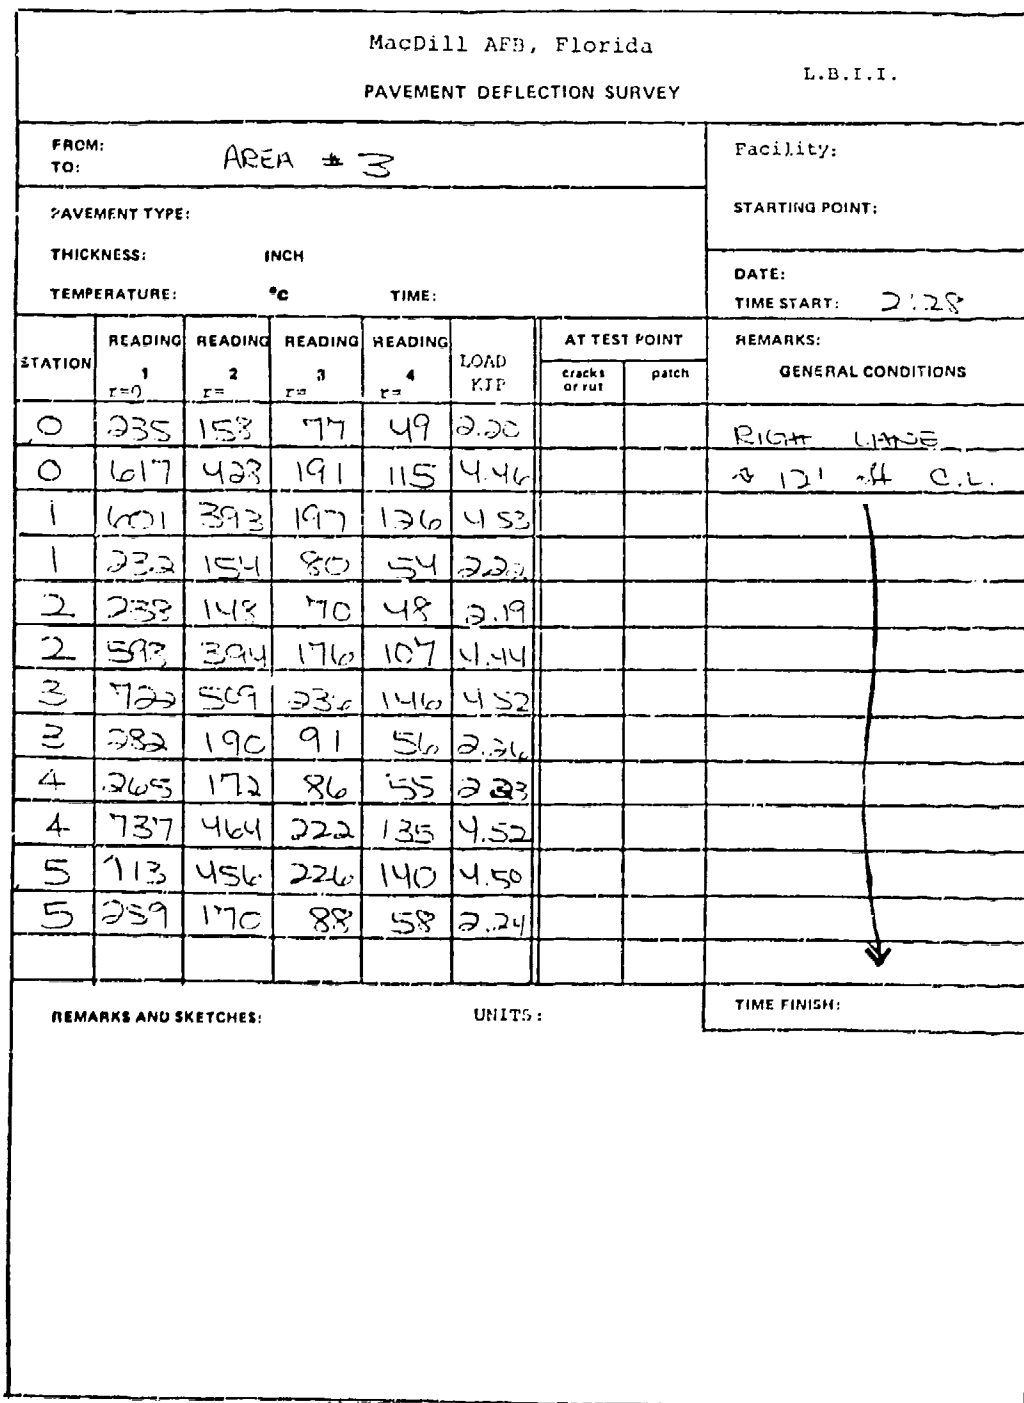 MacDill AFB, Florida
L.B.I.I.
PAVEMENT DEFLECTION SURVEY
FROM:
TO: AREA # 3
Facility:
STARTING POINT:
PAVEMENT TYPE:
THICKNESS: INCH
TEMPERATURE: °C TIME:
DATE:
TIME START: 2:28
STATION READING 1 r=0 READING 2 r= READING 3 r= READING 4 r= LOAD KIP AT TEST POINT cracks or rut patch REMARKS: GENERAL CONDITIONS
0 235 158 77 49 2.20 RIGH LANE
0 617 423 191 115 4.46 12' C.L.
1 601 393 197 126 4.53
1 232 154 80 54 2.22
2 233 148 70 48 2.19
2 593 394 176 107 4.44
3 722 509 236 146 4.52
3 282 190 91 56 2.26
4 265 172 86 55 2.23
4 737 464 222 135 4.52
5 713 456 226 140 4.50
5 259 170 88 58 2.24
REMARKS AND SKETCHES: UNITS: TIME FINISH: